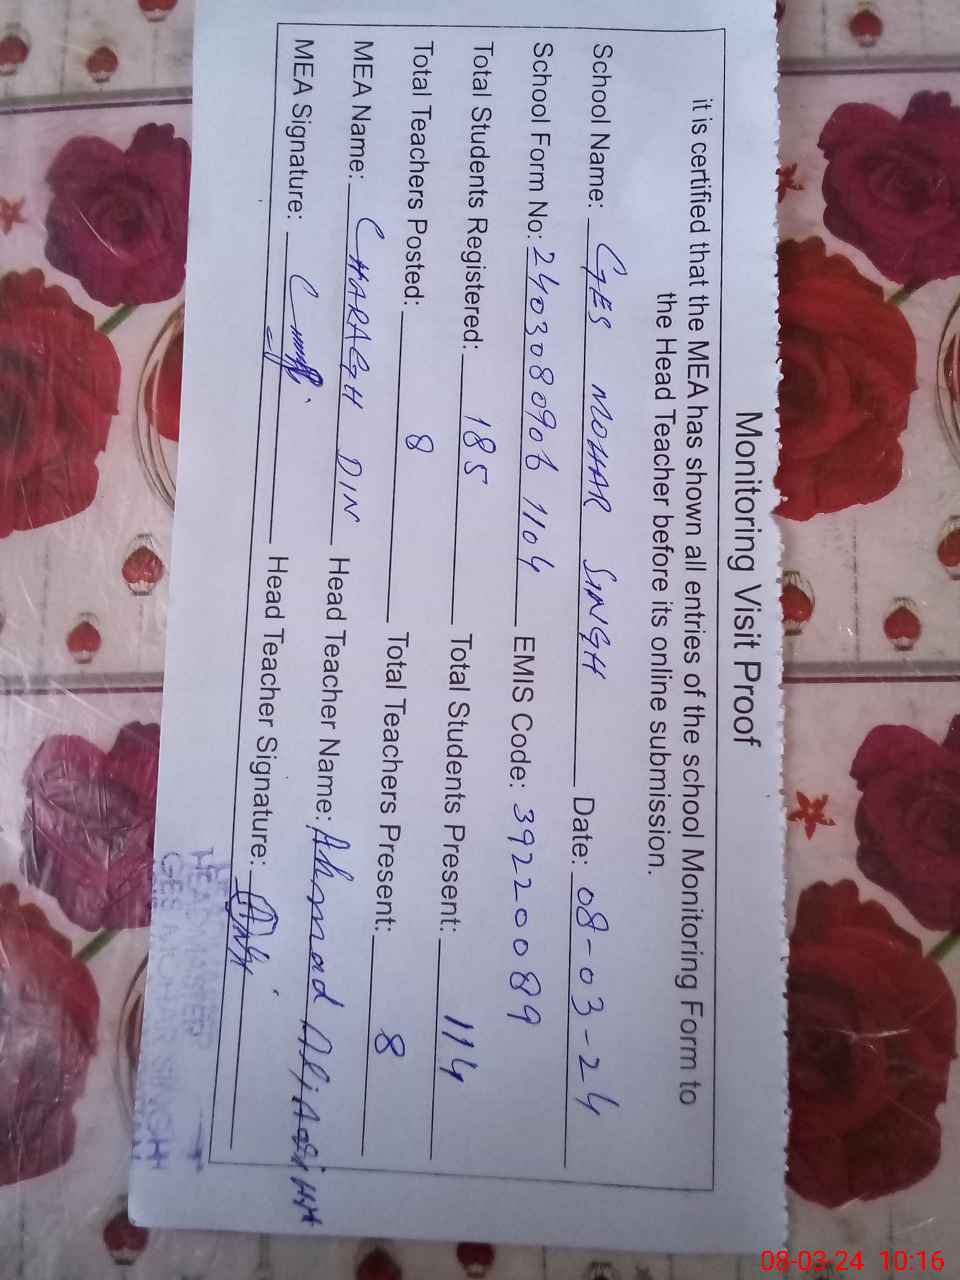 Monitoring Visit Proof
it is certified that the MEA has shown all entries of the school Monitoring Form to
the Head Teacher before its online submission.
School Name: GES MOHAR SINGH Date: 08-03-24
School Form No: 2403080906 1104 EMIS Code: 39220089
Total Students Registered: 185 Total Students Present: 114
Total Teachers Posted: 8 Total Teachers Present: 8
MEA Name: CHARAGH DIN Head Teacher Name: Ahmad Ali Aasi HM
MEA Signature: Head Teacher Signature:
HEADMASTER
GES MOHAR SINGH
08-03-24 10:16